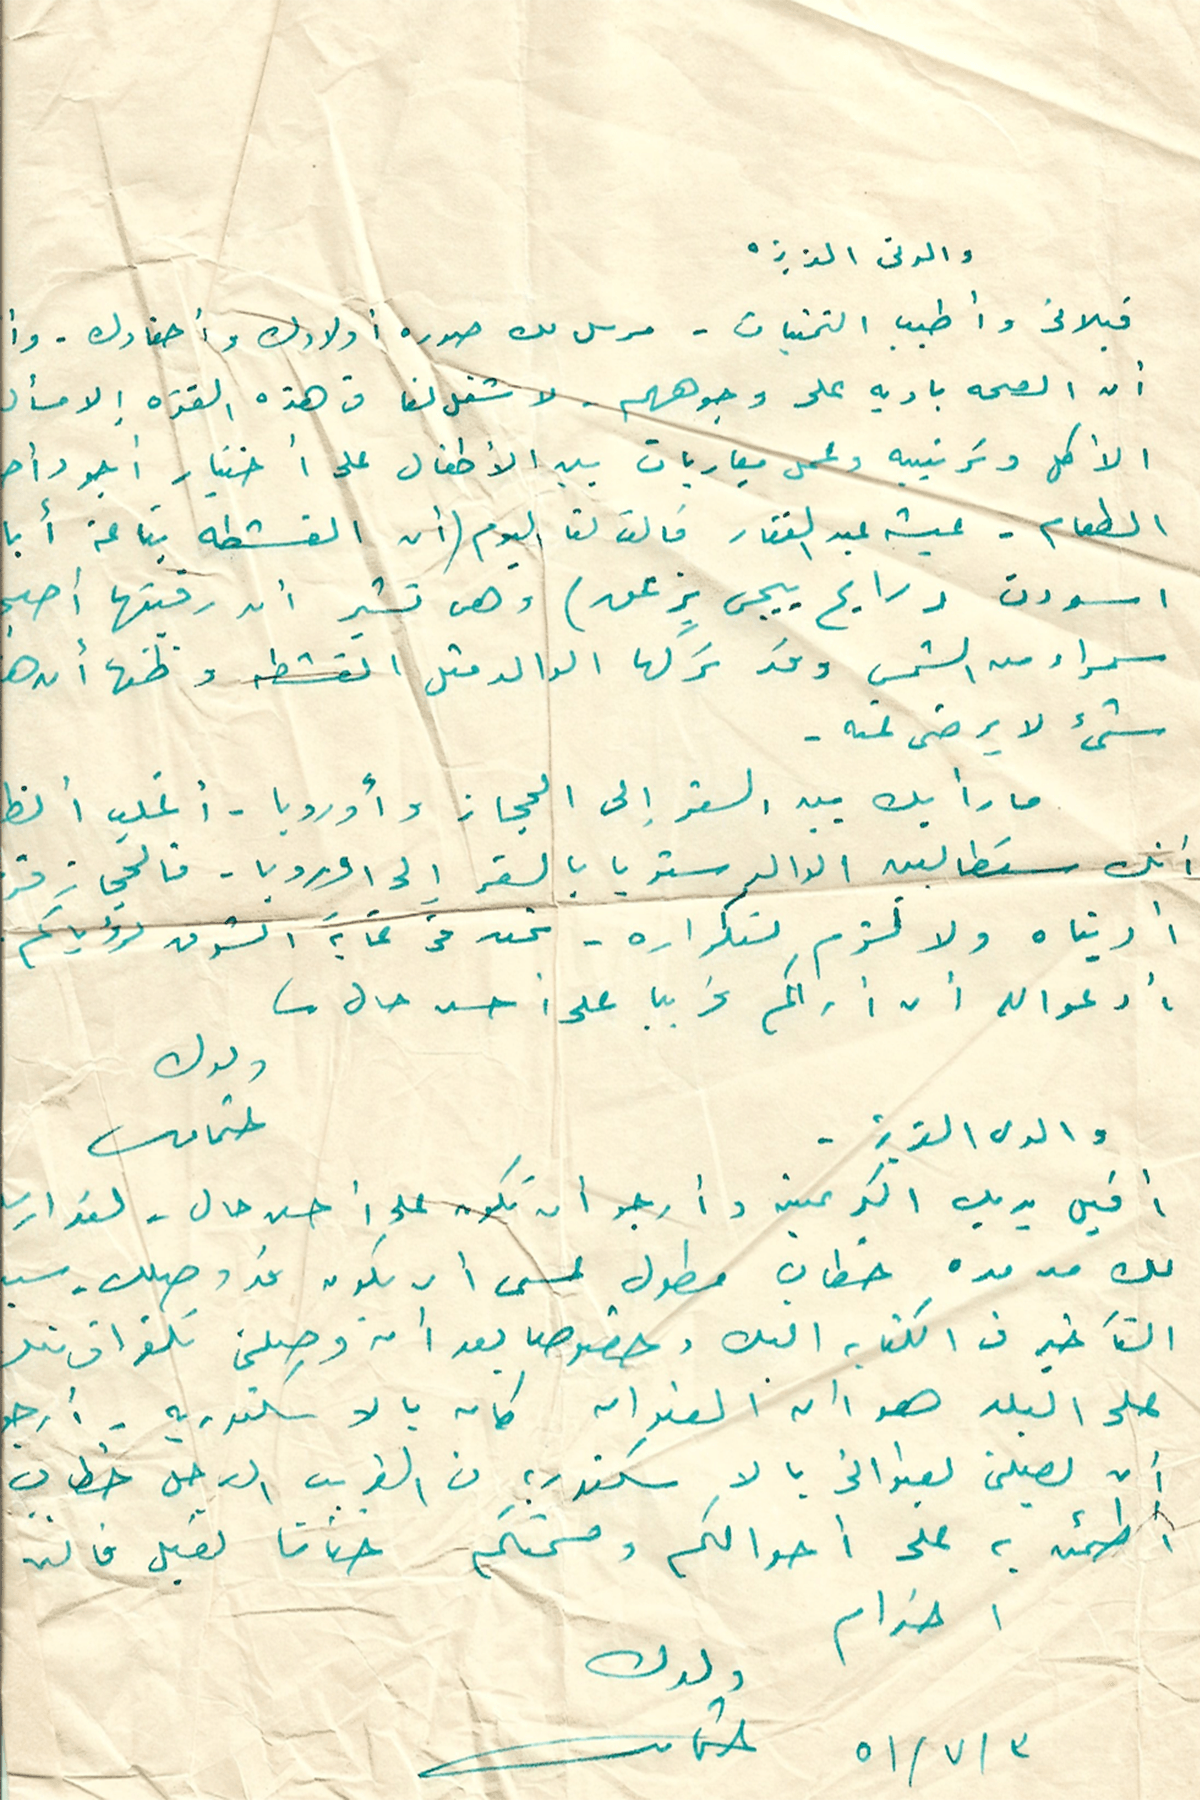 والدتى العزيزه
قبلاتى وأطيب التمنيات - مرسل لك صورة أولادك وأحفادك - وأ
أن الصحه باديه على وجوههم - لا شغل لنا فى هذه الفتره إلا مسأل
الأكل وترتيبه وعمل مباريات بين الأطفال على أختيار أجود
الطعام - عيشه عبد الغفار قالت لنا اليوم (أن القشطه بتاعة أبا
اسودت ورايح ييجى يزعق) وهى تشير أن رقبتها أصبح
سمراء من الشمس وقد تركها الوالد مثل القشطه وظنها أن هذ
شئ لا يرضى عنه -
ما رأيك بين السفر إلى الحجاز وأوروبا - أغلب الظ
أنك ستطالبين الوالد سنويا بالسفر إلى اوروبا - فالحجاز
أديناه ولا لزوم لتكراره - نحن فى غاية الشوق لرؤياكم
وأدعو الله أن أراكم قريبا على أحسن حال
ولدك
عثمان
والدى العزيز -
أقبل يديك الكريمتين وأرجو أن تكون على أحسن حال - لقد ارس
لك من مده خطاب مطول عسى أن يكون قد وصلك - سب
التأخير فى الكتابه اليك وخصوصا بعد أن وصلنى تلغرافين
على البلد هو ان العنوان كان بالاسكندريه - أرجو
أن يصلنى بعنوانى بالاسكندرية فى القريب العاجل خطاب
أطمئن به على أحوالكم وصحتكم ختاما تقبل فائق
احترام
ولدك
عثمان
٣/٧/٥١